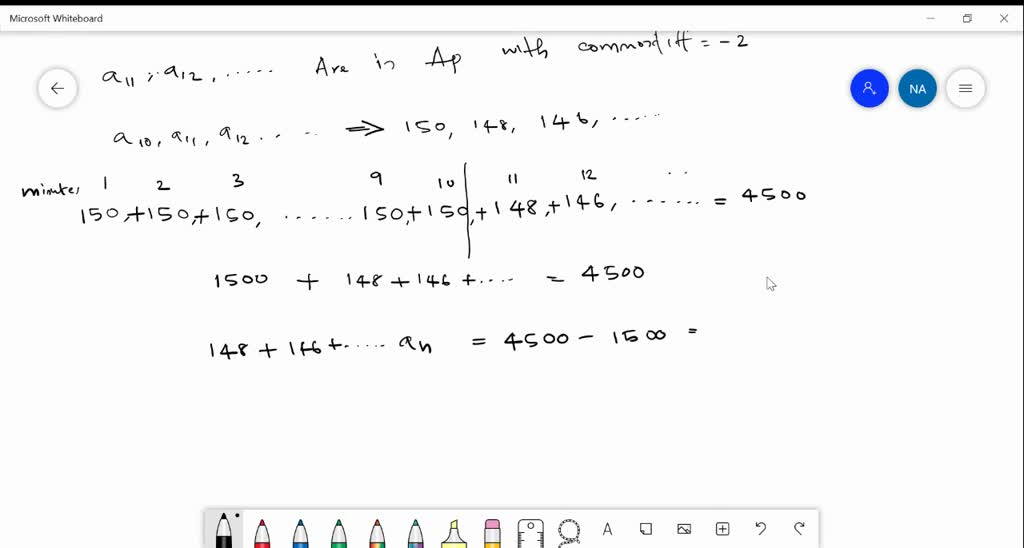 Microsoft Whiteboard
a11, a12, ..... Are in Ap with common diff = -2
NA
a10, a11, a12 ..... ⇒ 150, 148, 146, ......
minutes 1 2 3 9 10 11 12 ..
150,+150,+150, ...... 150,+150,+148,+146, ...... = 4500
1500 + 148+146+.... = 4500
148+146+..... an = 4500 - 1500 =
A